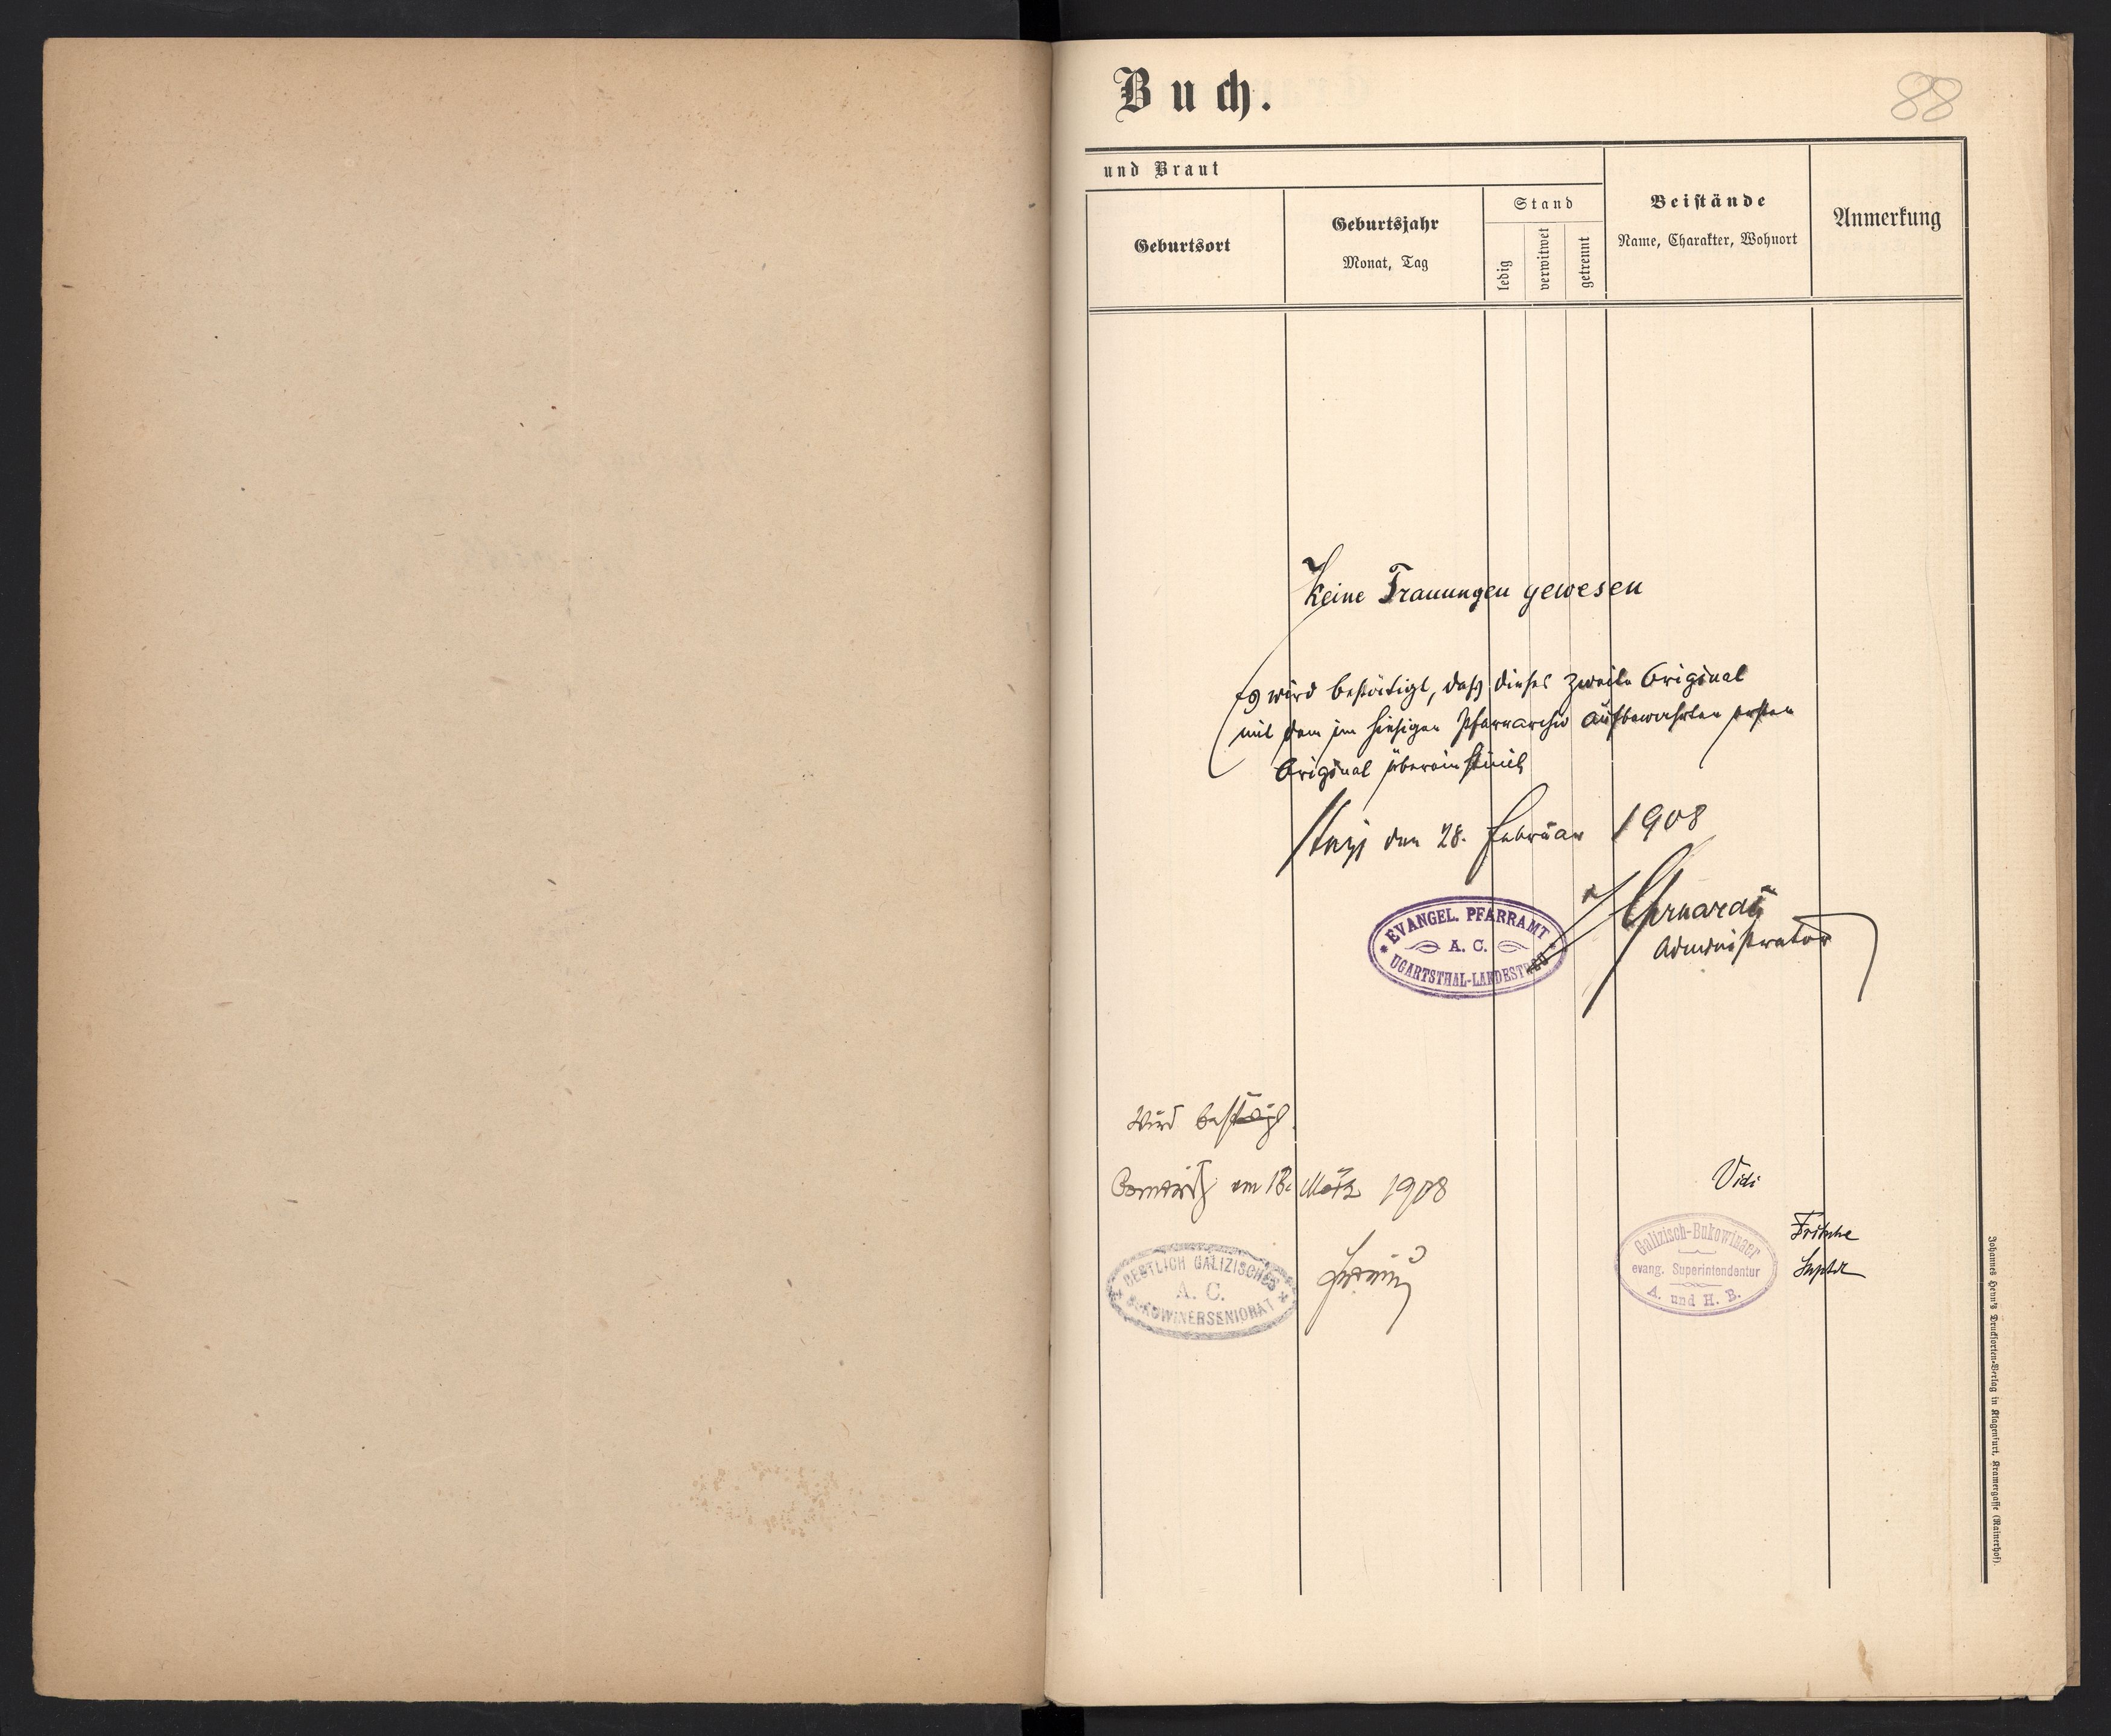 Buch.
88
und Braut
Geburtsort
Geburtsjahr
Monat, Tag
Stand
ledig
verwitwet
getrennt
Beistände
Name, Charakter, Wohnort
Anmerkung
Keine Trauungen gewesen
Es wird bestätigt, daß dieses zweite Original
mit dem im hiesigen Pfarrarchiv aufbewahrten ersten
Original übereinstimmt
Stryj den 28. Februar 1908
EVANGEL. PFARRAMT
A. C.
UGARTSTHAL-LANDESTREU
Administrator
Wird bestätigt.
am 18. März 1908
OESTLICH GALIZISCHES
A. C.
BUKOWINERSENIORAT
Vidi
Galizisch-Bukowinaer
evang. Superintendentur
A. und H. B.
Fritsche
Suptdt
Johannes Heyn's Drucksorten-Verlag in Klagenfurt, Kramergasse (Rainerhof).